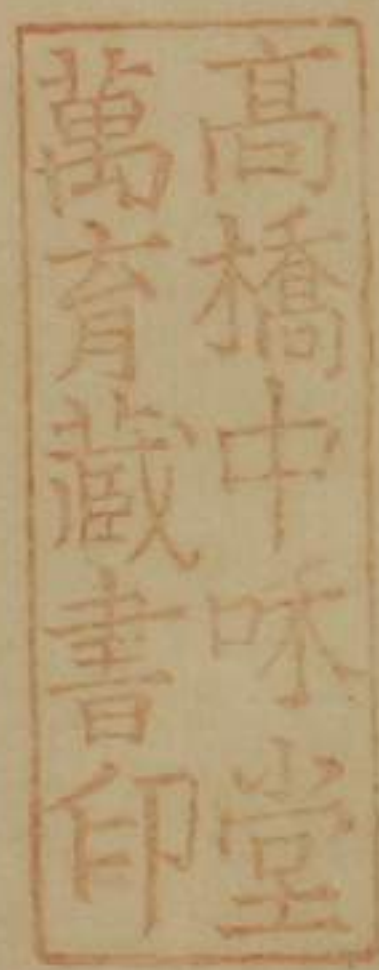 髙橋中味堂
萬育藏書印